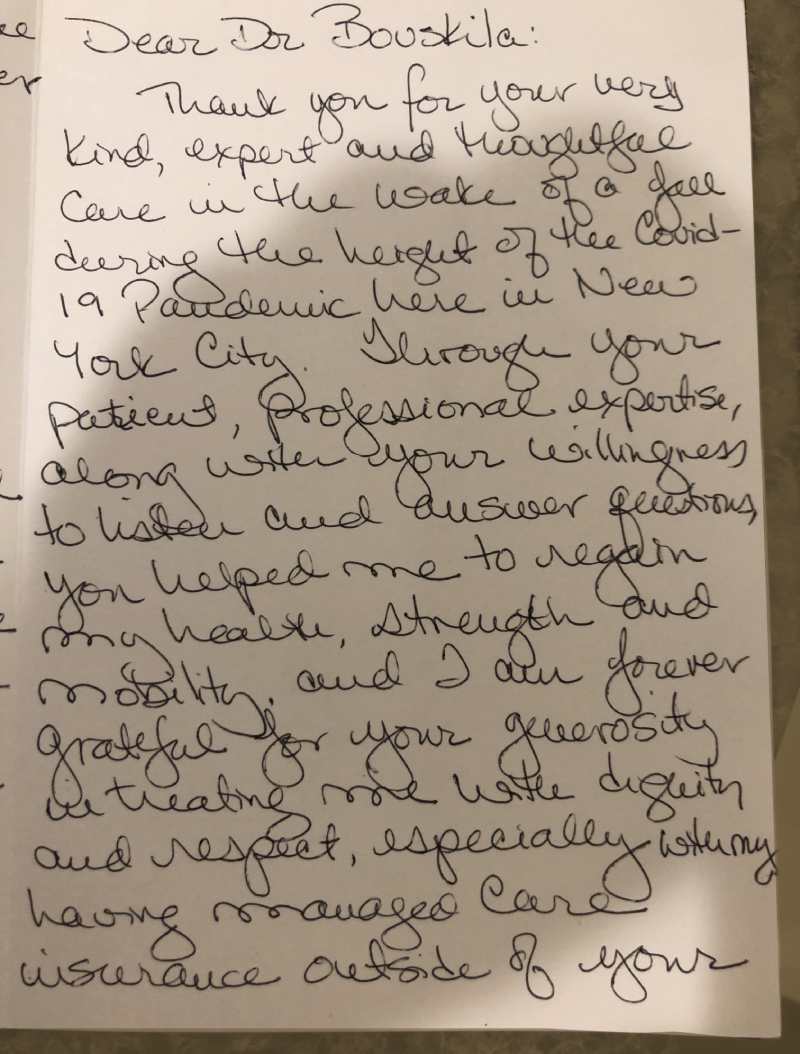 Dear Dr Bouskila:
Thank you for your very
kind, expert and thoughtful
care in the wake of a fall
during the height of the Covid-
19 Pandemic here in New
York City. Through your
patient, professional expertise,
along with your willingness
to listen and answer questions,
you helped me to regain
my health, strength and
mobility, and I am forever
grateful for your generosity
in treating me with dignity
and respect, especially with my
having managed care
insurance outside of your